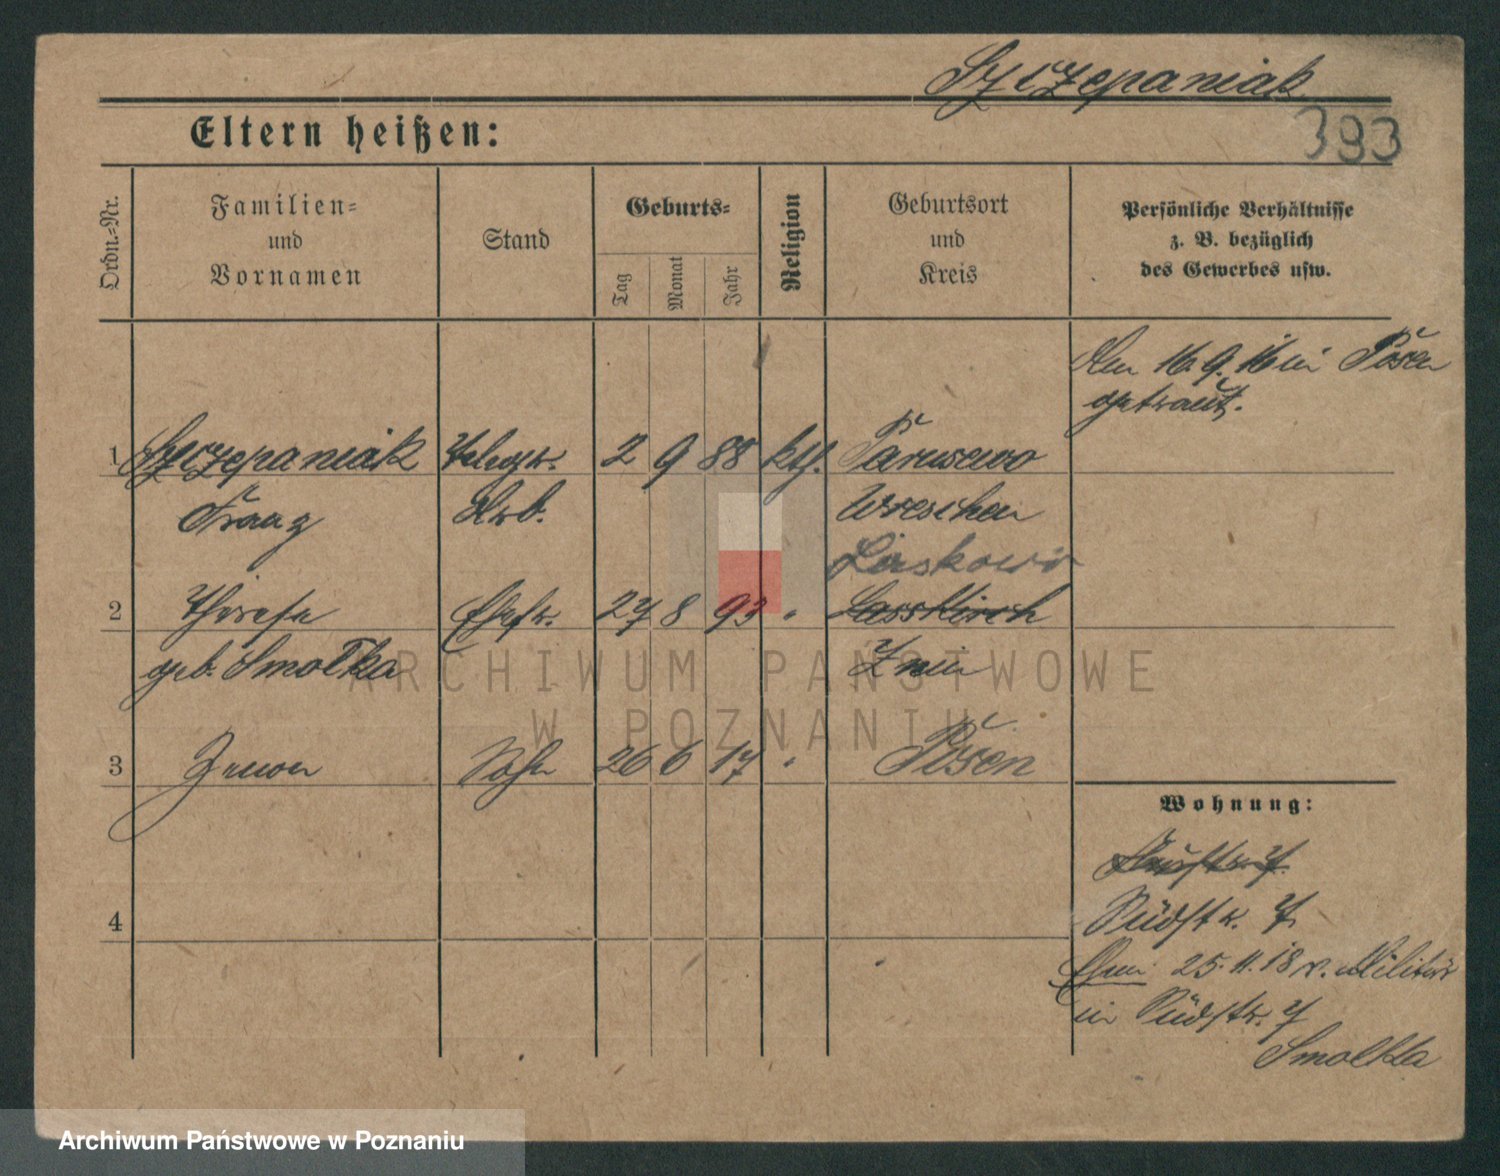 Szczepaniak
Eltern heißen:
393
Ordn.=Nr.
Familien=
und
Vornamen
Stand
Geburts=
Tag
Monat
Jahr
Religion
Geburtsort
und
Kreis
Persönliche Verhältnisse
z. B. bezüglich
des Gewerbes usw.
Am 16.9.16 in Posen
getraut.
1 Szczepaniak 2 9 88 kth. Tarnowo
Franz Arb. Wreschen
Laskowo
2 Therese Ehefr. 27 8 93 "
geb. Smolka Znin
3 Zenon Sohn 26 6 17 " Posen
Wohnung:
4
Südstr. 7
Ehem. 25.11.18 v. Militär
in Südstr. 7
Smolka
ARCHIWUM PAŃSTWOWE
W POZNANIU
Archiwum Państwowe w Poznaniu